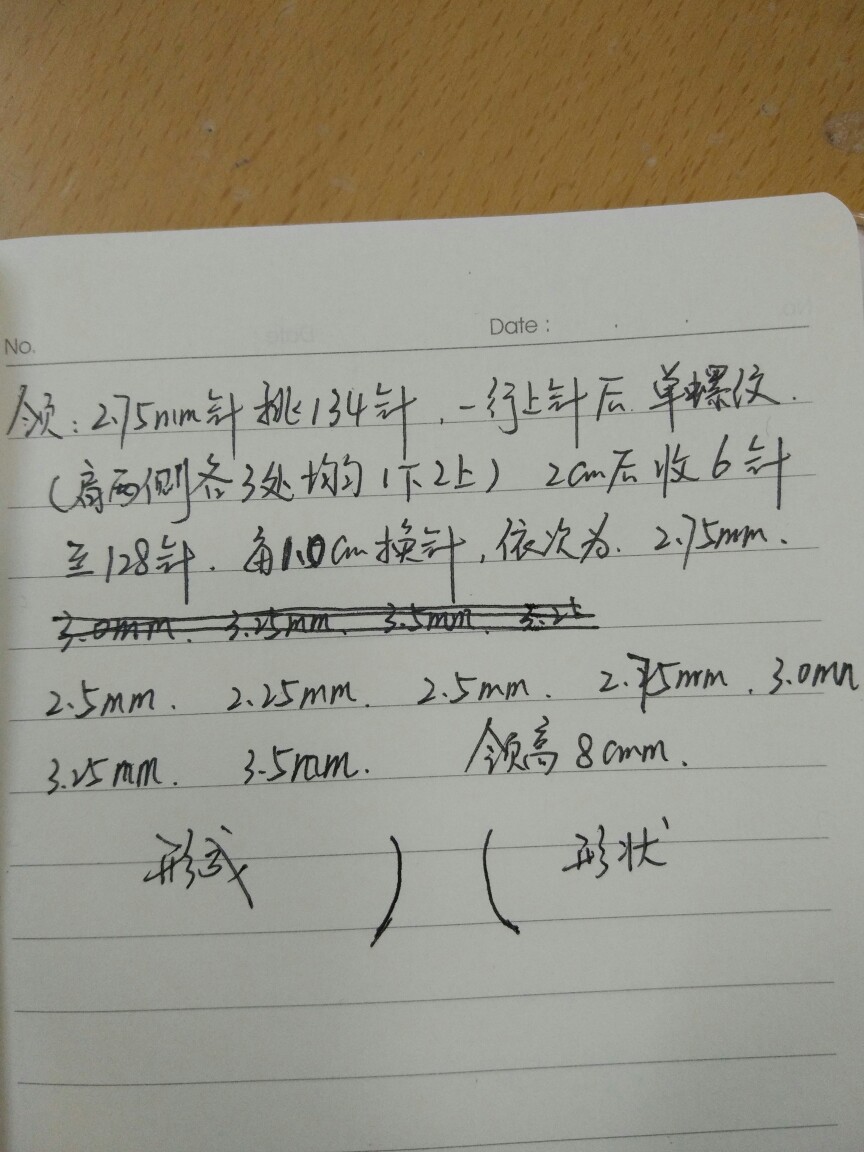 No.
Date :
领：2.75mm针挑134针，一行上针后，单螺纹．
（肩两侧各3处均匀1下2上） 2cm后收6针
至128针．每1.0cm换针，依次为．2.75mm、
3.0mm、3.25mm、3.5mm、3.25
2.5mm、2.25mm、2.5mm、2.75mm、3.0mm
3.25mm、3.5mm． 领高8cmm．
形成 ） （ 形状